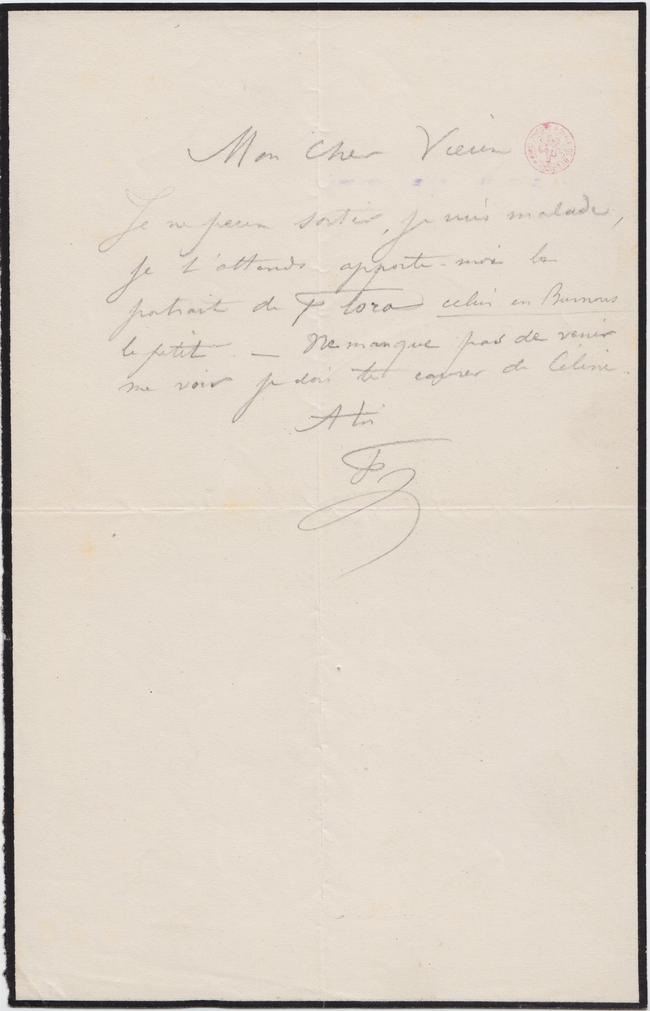 Mon Cher Vieux
Je ne peux sortir, je suis malade,
je t'attends apporte-moi le
portrait de Flora celui en Burnous
le petit — Ne manque pas de venir
me voir je dois te causer de Celine.
A toi
F